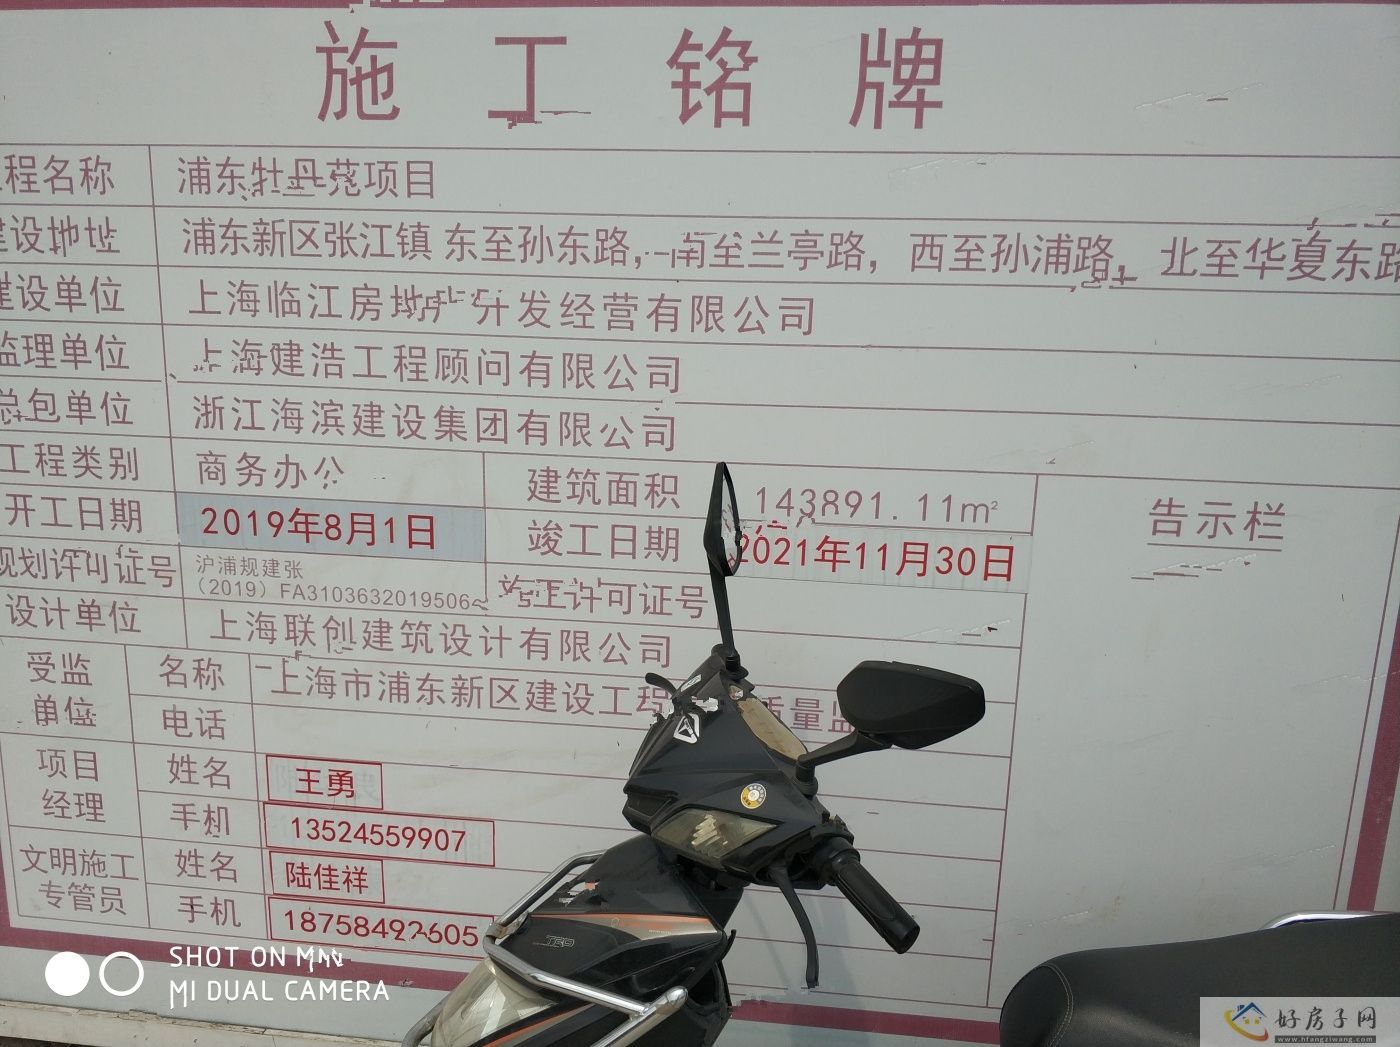 施工铭牌
程名称 浦东牡丹苑项目
建设地址 浦东新区张江镇 东至孙东路，南至兰亭路，西至孙浦路，北至华夏东路
建设单位 上海临江房地产开发经营有限公司
监理单位 上海建浩工程顾问有限公司
总包单位 浙江海滨建设集团有限公司
工程类别 商务办公 建筑面积 143891.11m²
告示栏
开工日期 2019年8月1日 竣工日期 2021年11月30日
规划许可证号 沪浦规建张
（2019）FA3103632019506 施工许可证号
设计单位 上海联创建筑设计有限公司
受监单位 名称 上海市浦东新区建设工程 质量监
电话
项目经理 姓名 王勇
手机 13524559907
文明施工专管员 姓名 陆佳祥
手机 18758492605
SHOT ON
MI DUAL CAMERA
好房子网
www.hfangziwang.com